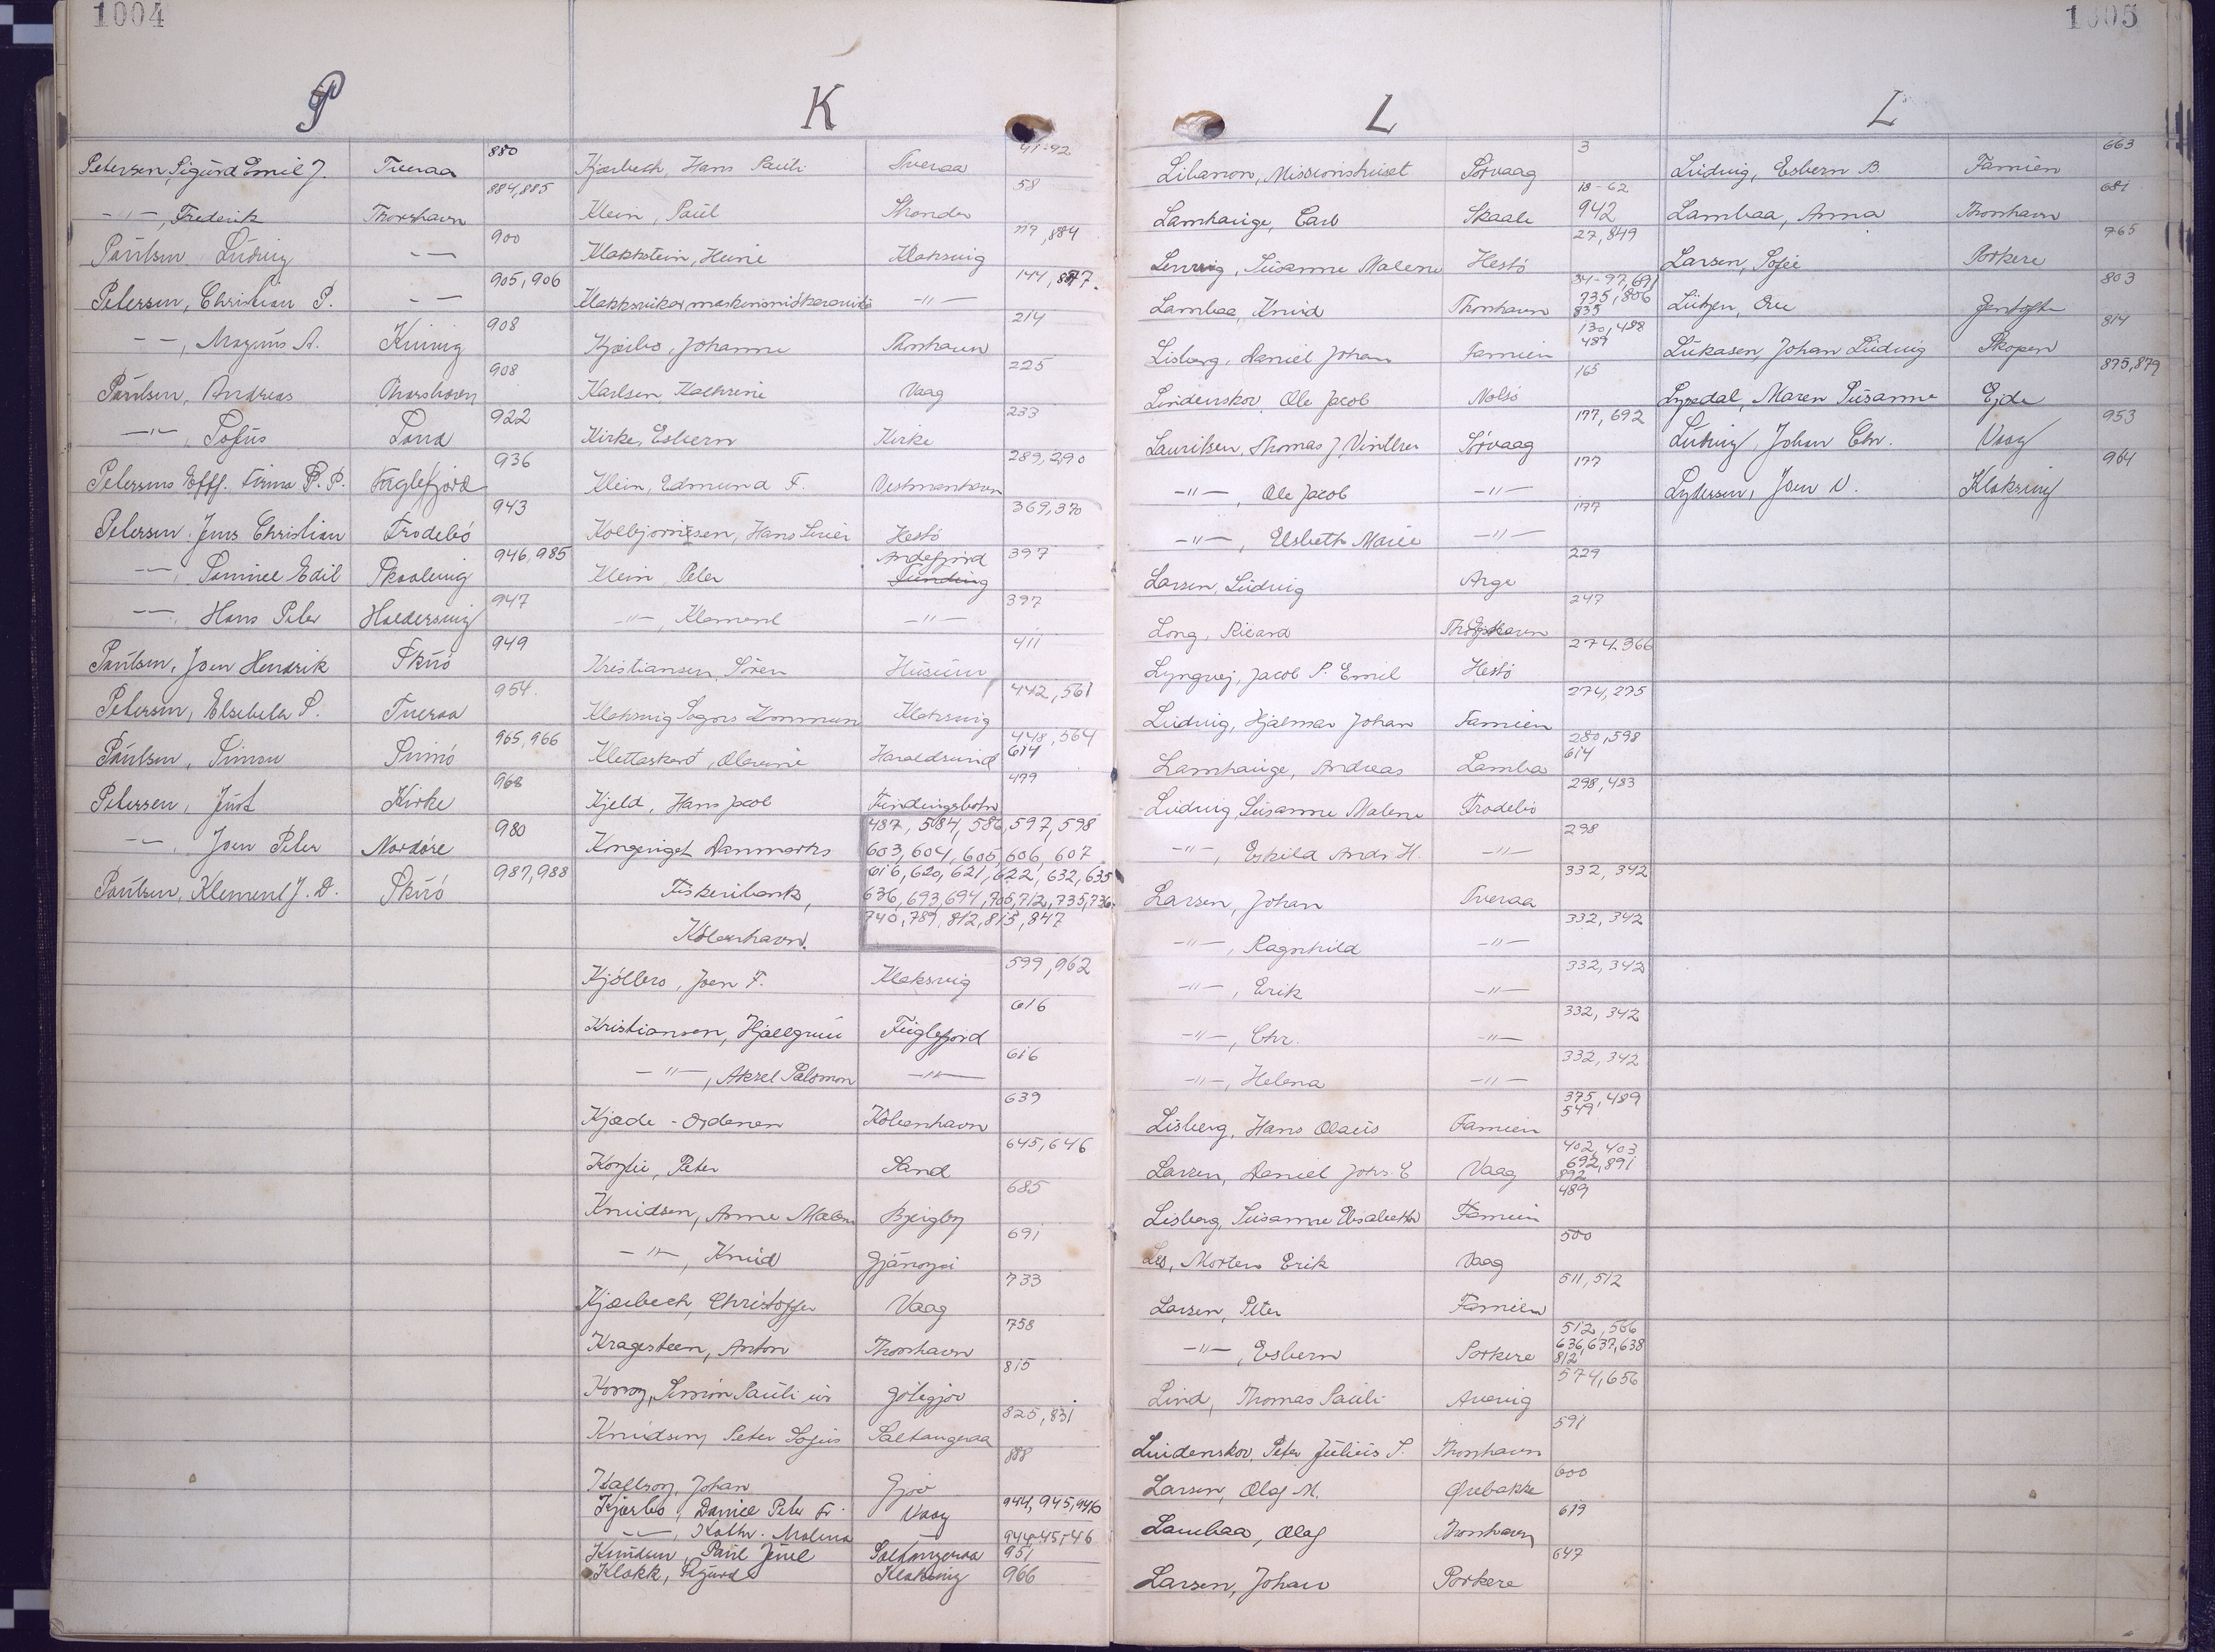 1004
P
Petersen, Sigurd Emil J. Tveraa 880
-"-, Frederik Thorshavn 884,885
Paulsen Ludvig -"- 900
Petersen, Christian P. -"- 905,906
-"-, Magnus A. Kunig 908
Paulsen, Andreas Thorshavn 908
-"-, Sofus Sand 922
Petersens Eftf. Firma P. P. Fuglefjord 936
Petersen, Jens Christian Frodebö 943
-"-, Samuel Edil Skaalevig 946,985
-"-, Hans Peter Haldersvig 947
Paulsen, Joen Hendrik Skuö 949
Petersen, Elsebeth S. Tveraa 954
Paulsen, Simon Svinö 965,966
Petersen, Just Kirke 968
-"-, Joen Peter Nordöre 980
Paulsen, Klement J. D. Skuö 987,988
K
Kjærbech, Hans Pauli Tveraa 91-92
Klein, Paul Strender 58
Klakkstein, Heine Klaksvig 119,884
Klakksvikar maskinsmidkaravirki -"- 144,847.
Kjærbo, Johanne Thorshavn 214
Karlsen, Kathrine Vaag 225
Kirke, Esbern Kirke 233
Klein, Edmund F. Vestmanhavn 289,290
Kolbjörnsen, Hans Sivier Hestö 369,370
Klein, Peter Andefjord Funding 397
-"-, Klement -"- 397
Kristiansen, Sören Husum 411
Klaksvig Sogns Kommune Klaksvig 442,561
Klettaskard, Olevine Haraldsund 448,564 614
Kjeld, Hans Jacob Fundingsbotn 479
Kongeriget Danmarks Fiskeribank, København. 487, 584, 586, 597, 598
603, 604, 605, 606, 607
616, 620, 621, 622, 632, 635
636, 693, 694, 705, 712, 735, 736.
740, 789, 812, 815, 847
Kjölbro, Joen F. Klaksvig 599,962
Kristiansen, Hjallgrim Fuglefjord 616
-"-, Aksel Salomon -"- 616
Kjæde-Ordenen København 639
Peter Sand 645,646
Knudsen, Anne Malene Bjeigby 685
-"-, Knud Gjánoyri 691
Kjærbech, Christoffer Vaag 733
Kragesteen, Anton Thorshavn 758
Simon Pauli Götegjov 815
Knudsen, Peter Sofus Saltangeraa 825,831
Kallsoy, Johan Gjov 888
Kjærbo, Daniel Peter Fr. Vaag 944,945,946
-"-, Kathr. Malena 944-45-46
Knudsen, Paul Juul Saltangeraa 951
Klakk, Sigurd Klaksvig 966
1005
L
Libanon, Missionshuset Sörvaag 3
Lamhauge, Carl Skaale 18-62 942
Lervig, Susanne Malene Hestö 27,849
Lambaa, Knud Thorshavn 34-97,691 735,806 835
Lisberg, Daniel Johan Famien 130,488 489
Lindenskov, Ole Jacob Nolsö 165
Lauritsen, Thomas J. Vinther Sörvaag 177,692
-"-, Ole Jacob -"- 177
-"-, Elsbeth Marie -"- 177
Larsen, Ludvig Arge 229
Long, Ricard Thorshavn 247
Lyngvej, Jacob P. Emil Hestö 274.366
Ludvig, Hjalmar Johan Famien 274,275
Lamhauge, Andreas Lamba 280,598 614
Ludvig, Susanne Malene Frodebö 298,483
-"-, Eskild Andr. H. -"- 298
Larsen, Johan Tveraa 332, 342
-"-, Ragnhild -"- 332, 342
-"-, Erik -"- 332, 342
-"-, Chr. -"- 332, 342
-"-, Helena -"- 332, 342
Lisberg, Hans Olaus Famien 375,489 549
Larsen, Daniel Johs. E Vaag 402,403 692,891 892
Lisberg, Susanne Elisabeth Famien 489
Les, Morten Erik Vaag 500
Larsen, Peter Famien 511,512
-"-, Esbern Porkere 512,566 636,637,638 812
Lind, Thomas Pauli Averig 574,656
Lindenskov, Peter Julius S. Thorshavn 591
Larsen, Olaf M. Örebakke 600
Lambaa, Olaf Thorshavn 619
Larsen, Johan Porkere 647
L
Ludvig, Esbern B. Famien 663
Lambaa, Anna Thorshavn 681
Larsen, Sofie Porkere 765
Lützen, Ove Gentofte 803
Lukasen, Johan Ludvig Skopen 814
Lysedal, Maren Susanne Ejde 875,879
Ludvig, Johan Chr. Vaag 953
Lydersen, Joen D. Klaksvig 964